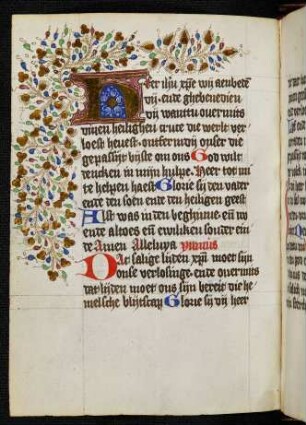 Heer ihu xpe wij aenbede
dij ende ghebenedien
dij want du ouermits
dinen heilighen cruce die werlt ver
lost heueste
der ons God wilt
dencken in mijn hulpe Heer tot mi
te helpen haest Glorie si den vader
ende den soen ende den heiligen geest
Alst was in den beghinne en nv
ende altoes en ewiliken sonder ein
de Amen Alleluya ymnus
Dat salige liden xpi moet sijn
onse verlosinge ende ouermits
dat liden moet ons sijn bereit die he
melsche blijtscap Glorie si dij heer